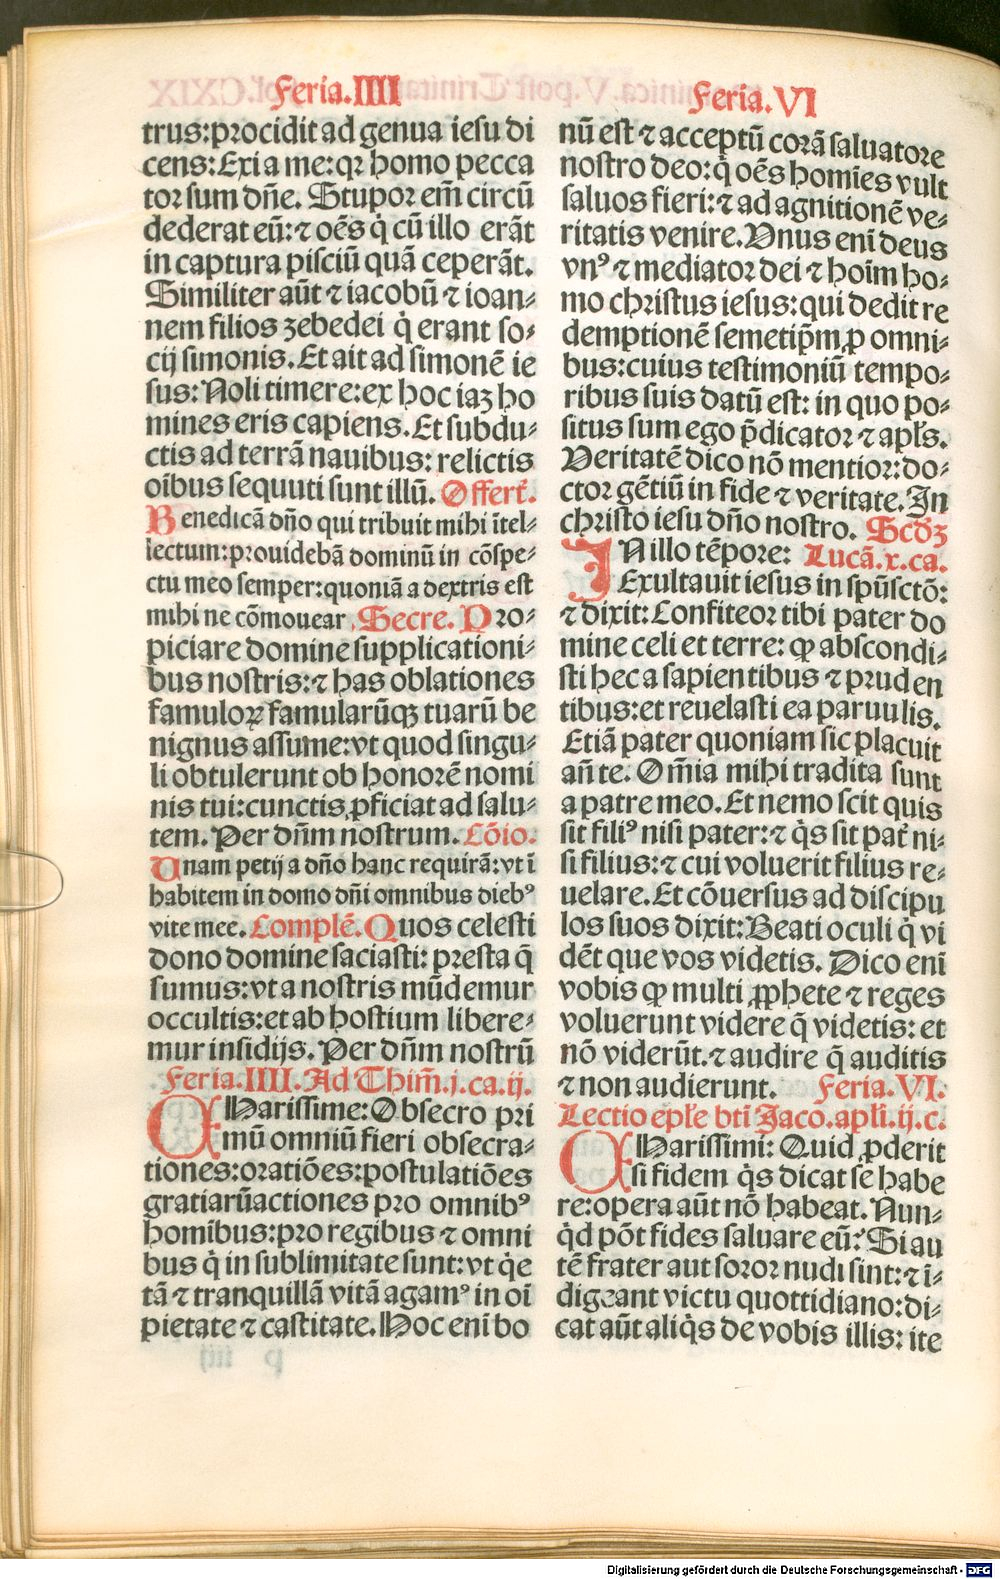 Feria.IIII
trus:procidit ad genua iesu di
cens:Exi a me:qꝛ homo pecca
tor sum dñe. Stupor em̄ circū
dederat eū:⁊ oēs q̇ cū illo erāt
in captura pisciū quā ceperāt.
Similiter aūt ⁊ iacobū ⁊ ioan⸗
nem filios zebedei q̇ erant so⸗
cij simonis. Et ait ad simonē ie
sus:Noli timere:ex hoc iaʒ ho
mines eris capiens. Et subdu⸗
ctis ad terrā nauibus: relictis
oībus sequuti sunt illū. Offert̄.
Benedicā dño qui tribuit mihi ītel⸗
lectum:prouidebā dominū in cōspe⸗
ctu meo semper:quoniā a dextris est
mihi ne cōmouear. Secre. Pro⸗
piciare domine supplicationi⸗
bus nostris:⁊ has oblationes
famuloꝝ famularūqꝫ tuarū be
nignus assume:vt quod singu⸗
li obtulerunt ob honorē nomi
nis tui:cunctis ꝓficiat ad salu⸗
tem. Per dñm nostrum. Cōio.
Unam petij a dño hanc requirā:vt ī
habitem in domo dñi omnibus diebꝰ
vite mee. Complē. Quos celesti
dono domine saciasti: presta q̄
sumus:vt a nostris mūdemur
occultis:et ab hostium libere⸗
mur insidijs. Per dñm nostrū
Feria.IIII. Ad Thim̄.j.ca.ij.
CHarissime:Obsecro pri
mū omniū fieri obsecra⸗
tiones:oratiōes:postulatiōes
gratiarū actiones pro omnibꝰ
homībus:pro regibus ⁊ omni
bus q̇ in sublimitate sunt:vt q̇e
tā ⁊ tranquillā vitā agamꝰ in oī
pietate ⁊ castitate. Hoc eni bo
Feria.VI
nū est ⁊ acceptū corā saluatore
nostro deo:q̇ oēs homīes vult
saluos fieri:⁊ ad agnitionē ve⸗
ritatis venire. Vnus enī deus
vnꝰ ⁊ mediator dei ⁊ hoīm ho⸗
mo christus iesus:qui dedit re
demptionē semetip̄m ꝓ omni⸗
bus:cuius testimoniū tempo⸗
ribus suis datū est: in quo po⸗
situs sum ego p̄dicator ⁊ apl̄s.
Veritatē dico nō mentior:do⸗
ctor gētiū in fide ⁊ veritate. In
christo iesu dño nostro. Scd̄ʒ
IN illo tēpore: Lucā.x.ca.
Exultauit iesus in spūsctō:
⁊ dixit: Confiteor tibi pater do
mine celi et terre: ꝙ abscondi⸗
sti hec a sapientibus ⁊ pruden
tibus:et reuelasti ea paruulis.
Etiā pater quoniam sic placuit
añ te. Om̄ia mihi tradita sunt
a patre meo. Et nemo scit quis
sit filiꝰ nisi pater:⁊ q̇s sit pat̄ ni⸗
si filius:⁊ cui voluerit filius re⸗
uelare. Et cōuersus ad discipu
los suos dixit: Beati oculi q̇ vi
dēt que vos videtis. Dico enī
vobis ꝙ multi ꝓphete ⁊ reges
voluerunt videre q̄ videtis: et
nō viderūt.⁊ audire q̄ auditis
⁊ non audierunt. Feria.VI.
Lectio epl̄e bti Jaco.apl̄i.ij.c.
CHarissimi: Quid ꝓderit
si fidem q̇s dicat se habe
re:opera aūt nō habeat. Nun⸗
q̇d pōt fides saluare eū? Si au
tē frater aut soror nudi sint:⁊ ī⸗
digeant victu quottidiano:di⸗
cat aūt aliq̇s de vobis illis: ite
Digitalisierung gefördert durch die Deutsche Forschungsgemeinschaft - DFG